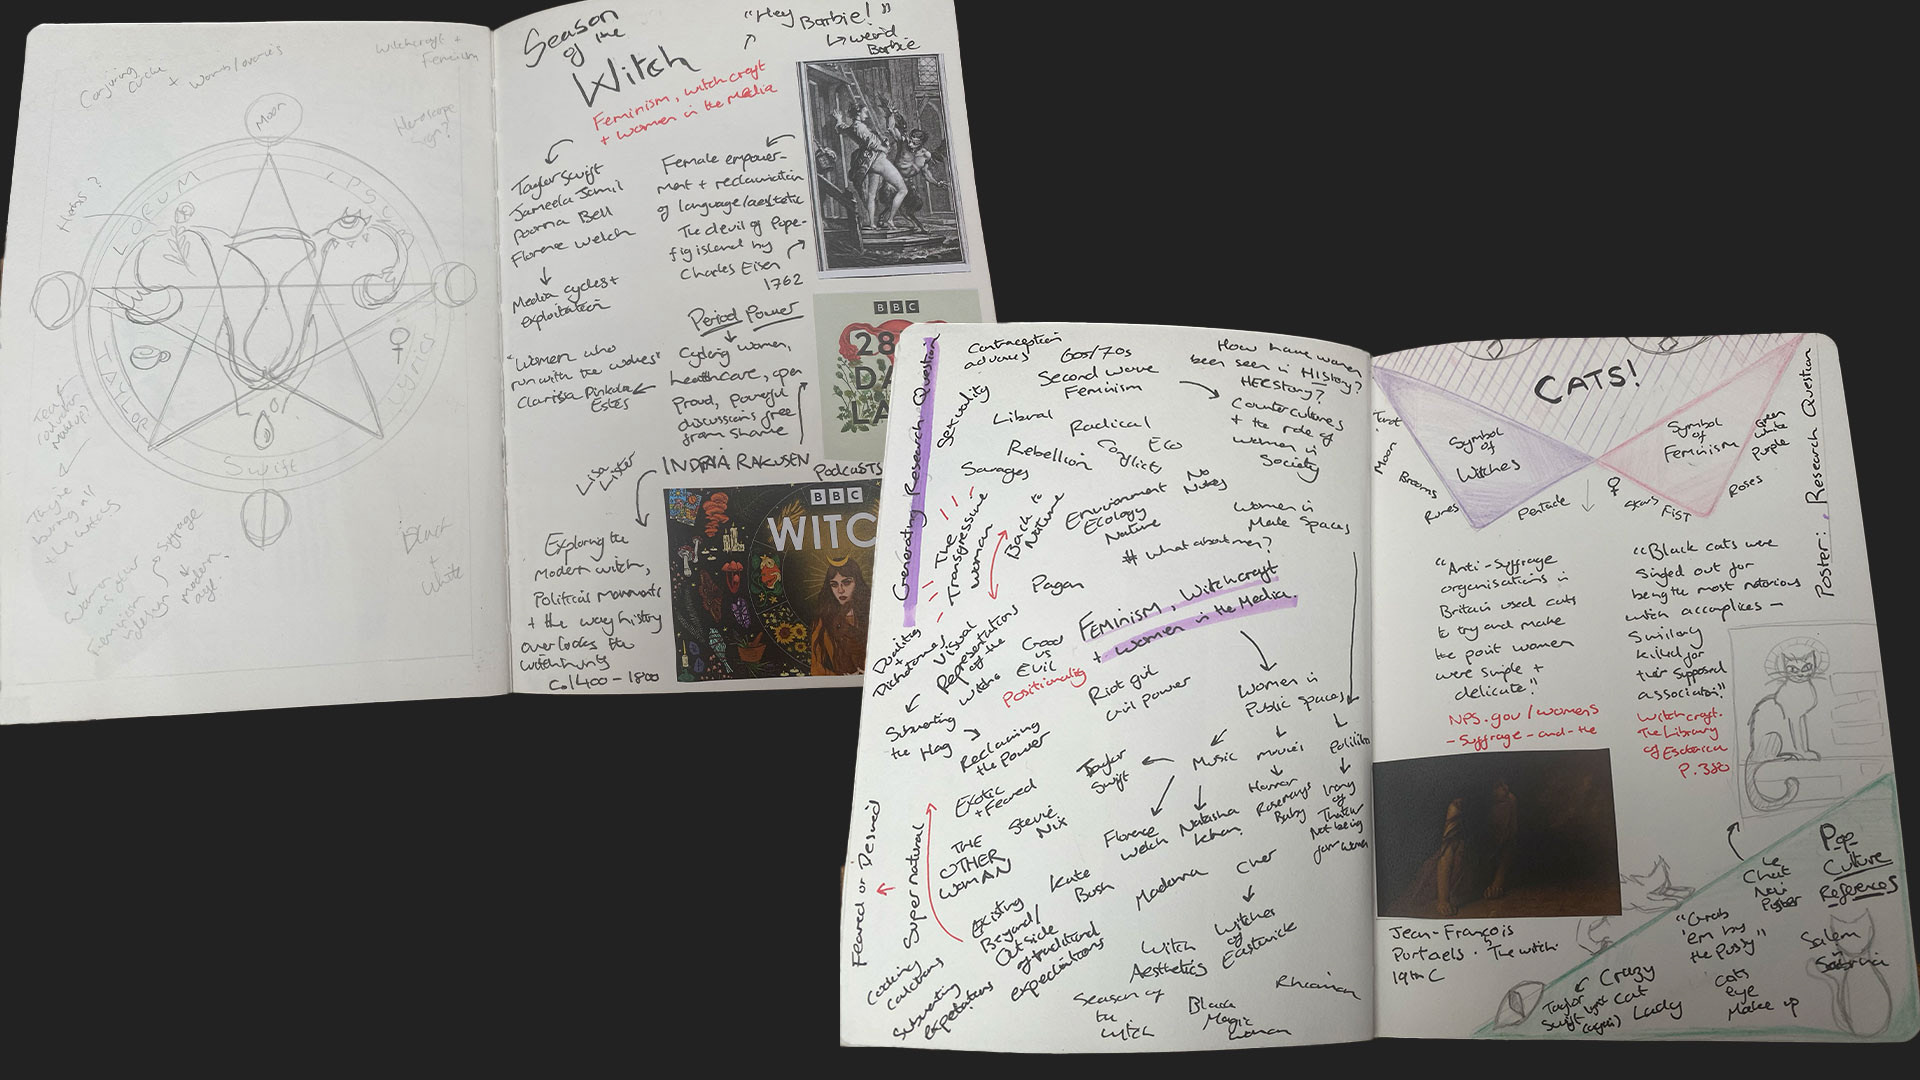 Conjuring
Circle
+
Womb/ovaries
Witchcraft +
Feminism
Horoscope
Sign?
Herbs?
Moon
LORUM
IPSUM
TAYLOR
Swift
Lyrics
Black
+
White
Suffrage
modern
age
Season
of the
Witch
"Hey Barbie!"
↳ weird
Barbie
Feminism, witchcraft
+ women in the media
Taylor Swift
Jameela Jamil
Poorna Bell
Florence Welch
Media cycles +
exploitation
"Women who
run with the wolves"
Clarissa Pinkola
Estes
Female empower-
ment + reclamation
of language/aesthetic
The devil of Pope-
fig island by
Charles Eisen
1762
Period Power
Cycling women,
healthcare, open
proud, powerful
discussions free
from shame
Lisa Lister
INDRIA RAKUSEN
Podcasts
BBC
28
DA
LA
Exploring the
modern witch,
Political movements
+ the way history
overlooks the
witchhunts
c.1400-1800
BBC
WITC
Generating Research Question
Contraception
advances
60s/70s
Second wave
Feminism
How have women
been seen in HIStory?
HERStory?
Sexuality
Liberal
Radical
Countercultures
+ the role of
women in
Society
Rebellion
Conflict
Eco
Savages
No
Nukes
The
Transgressive
woman
Back to
Nature
Environment
Ecology
Nature
Women in
Male Spaces
# what about men?
Pagan
Feminism, Witchcraft
+ women in the Media.
Dualities
+
Dichotomies
Visual
Representations
of the
witch
Good
vs
Evil
Positionality
Riot grrl
Girl power
Women in
Public Spaces
Subverting
the Hag
Reclaiming
the Power
Music
movies
Politics
Taylor
Swift
Exotic
+ Feared
Stevie
Nix
Horror
Rosemarys
Baby
Irony
of
Thatcher
Not being
for women
Feared or Desired
Super natural
THE
OTHER
WOMAN
Florence
Welch
Natasha
Khan
Kate
Bush
Madonna
Cher
Existing
Beyond/
Outside
of traditional
expectations
Witches
of
Eastwick
Witch
Aesthetics
Cooking
Caldrons
Subverting
expectations
Season of
the
Witch
Black
Magic
Woman
Rhiannon
CATS!
Poster: Research Question
Symbol
of
Witches
Symbol
of
Feminism
Tarot
Moon
Brooms
Runes
Pentacle
♀
Stars
Fist
Roses
Green
White
Purple
"Anti-Suffrage
organisations in
Britain used cats
to try and make
the point women
were simple +
delicate."
NPS.gov/womens
-Suffrage-and-the
"Black cats were
Singled out for
being the most notorious
witch accomplices -
Similarly
killed for
their supposed
association"
Witchcraft.
The Library
of Esoterica
P.380
Jean-François
Portaels. The witch.
19th C
Pop
Culture
References
Le
Chat
Noir
Poster
"Grab
'em by
the Pussy"
Salem
Sabrina
Crazy
Cat
Lady
Taylor
Swift
(again)
Cats
eye
Make up